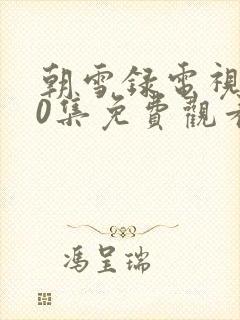 朝雪録電視
0集免費觀看
馮呈瑞